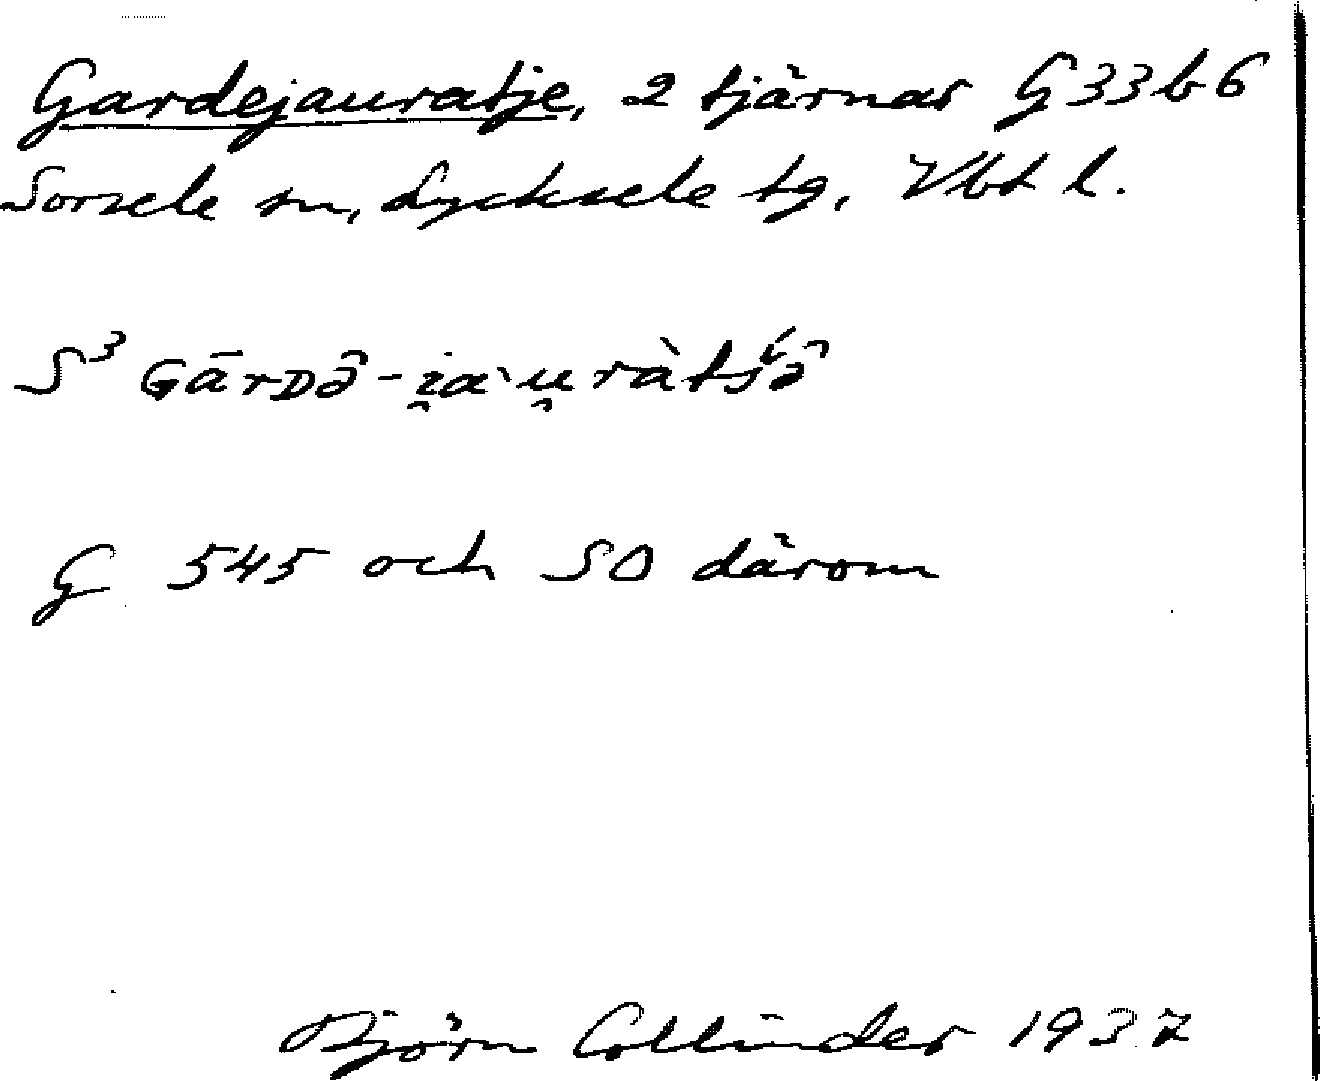 Gardejauratje, 2 tjärnar G33b6
Sorsele sn, Lycksele tg, Vbt l.
S³ Gārᴅə̑-i̯a`u̯ràtś́ə̑
G 545 och SO därom
Björn Collinder 1937